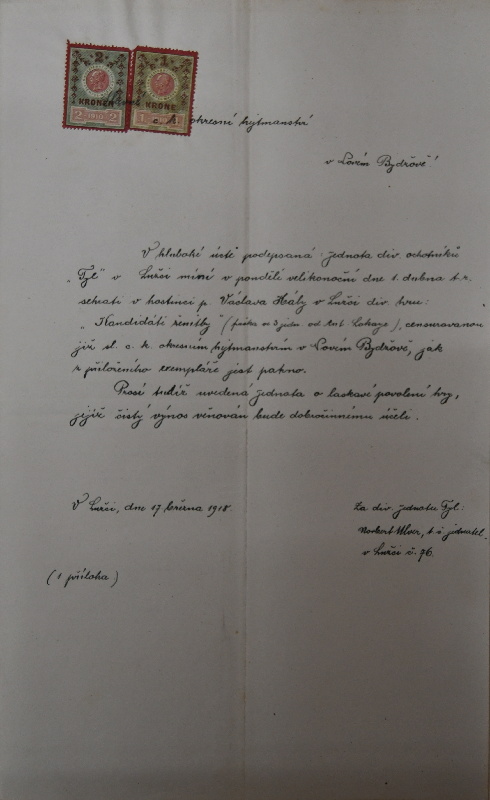 2 1
KRONEN KRONE
2 1910 2 1
c. k. okresní hejtmanství
v Novém Bydžově!
V hluboké úctě podepsaná jednota div. ochotníků
„Tyl" v Lužci míní v pondělí velikonoční dne 1. dubna t. r.
sehrati v hostinci p. Václava Haly v Lužci div. hru:
„Kandidáti ženitby" (fraška o 3 jedn. od Ant. Lokaye), censurovanou
již sl. c. k. okresním hejtmanstvím v Novém Bydžově, jak
z přiloženého exempláře jest patrno.
Prosí tudíž uvedená jednota o laskavé povolení hry,
jejíž čistý výnos věnován bude dobročinnému účeli.
V Lužci, dne 17. března 1918.
Za div. jednotu Tyl:
Norbert, t. č. jednatel.
v Lužci č. 76.
(1 příloha)